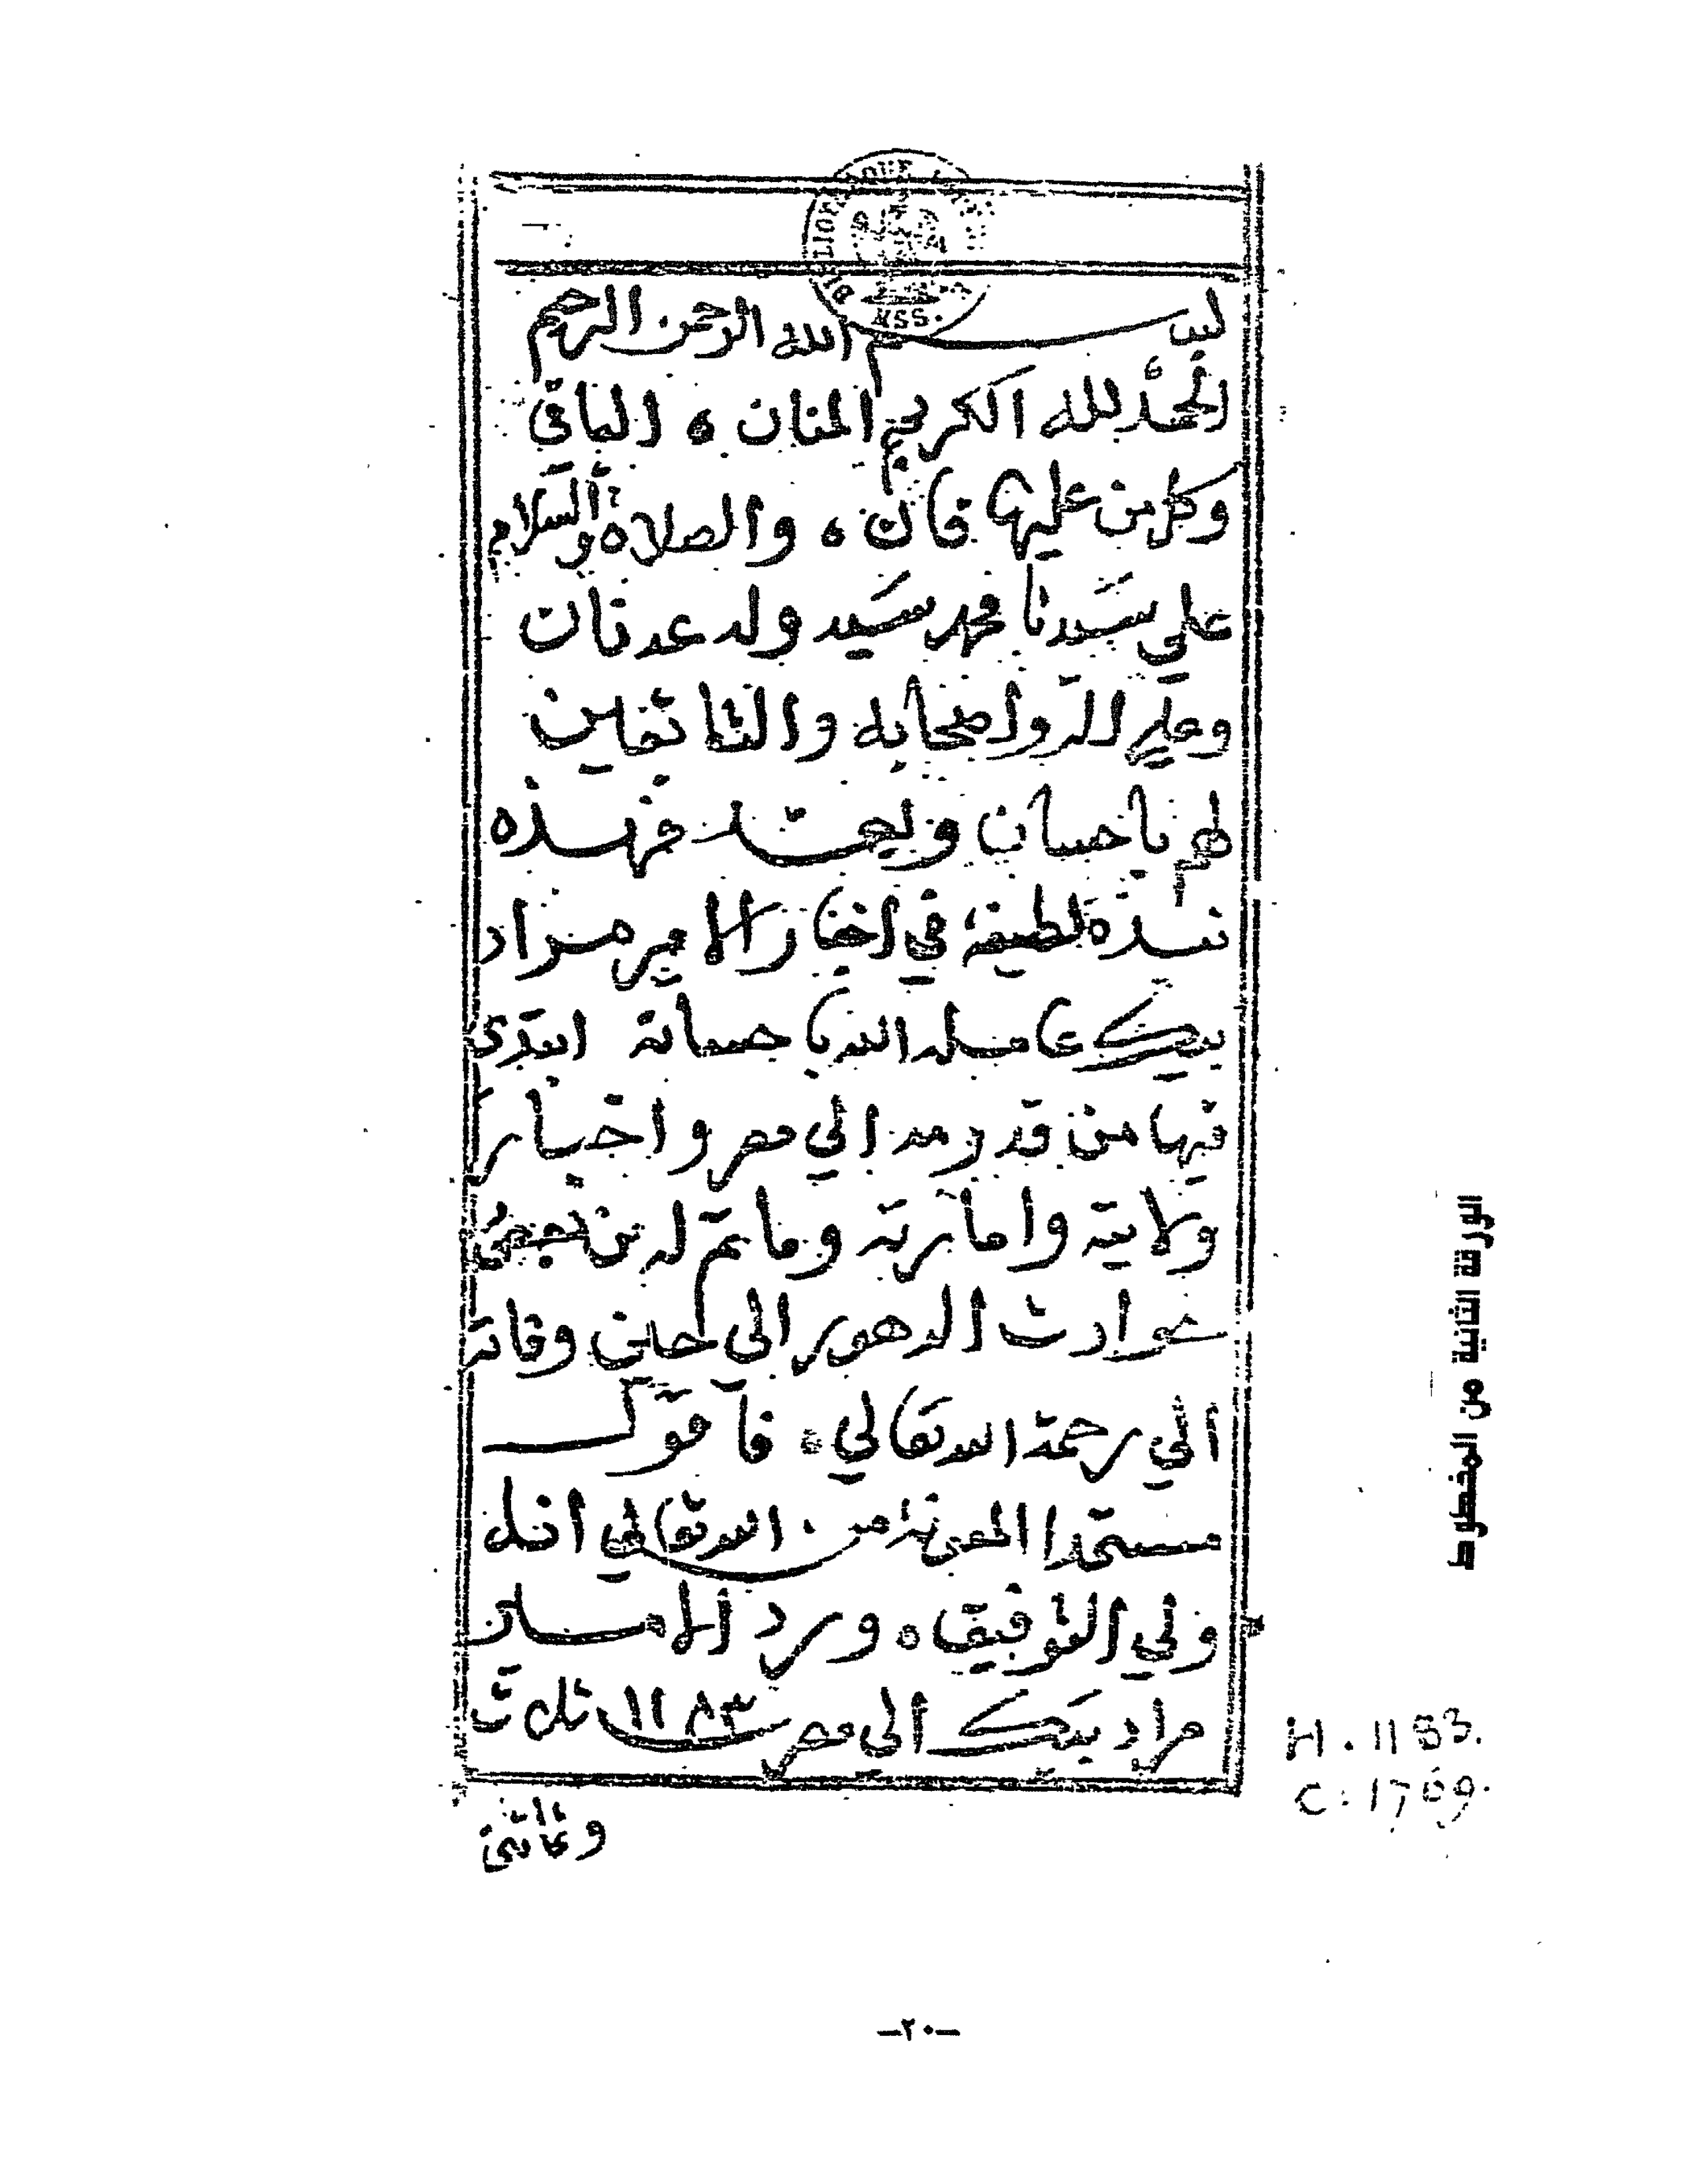 بسم الله الرحمن الرحيم
الحمد لله الكريم المنان ، الباقي
وكل من عليها فان ، والصلاة والسلام
علي سيدنا محمد سيد ولد عدنان
وعلي اله واصحابه والتابعين
لهم باحسان وبعد فهذه
نبذه لطيفة في اخبار الامير مراد
بيك عامله الله باحسانه ابتدى
فيها من قدومه الي مصر واخبار
ولايته وامارته وما تم له من
حوادث الدهور الي حين وفاته
الي رحمة الله تعالي ، فاقول
مستمدا المعونة من الله تعالي انه
ولي التوفيق ، ورد الامير
مراد بيك الي مصر سنة ١١٨٣ ثلاث
وثمانين
الورقة الثانية من المخطوط
H. 1183.
C: 1769.
MSS.
–٢٠–